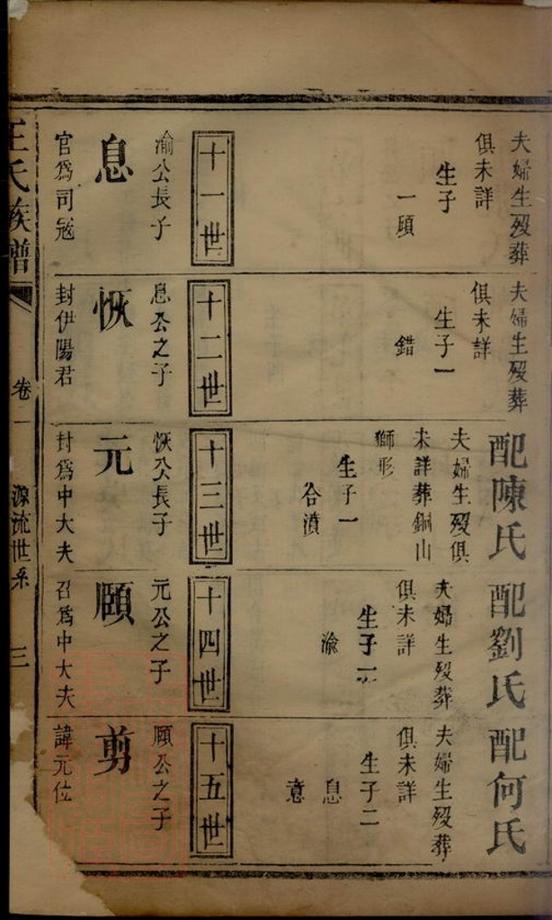 夫婦生殁葬
俱未詳
生子
一頤
十一世
渝公長子
息
官爲司冦
夫婦生殁葬
俱未詳
生子一
錯
十二世
息公之子
恢
封伊陽君
配陳氏
夫婦生殁俱
未詳葬銅山
獅形
生子一
合瀆
十三世
恢公長子
元
封爲中大夫
配劉氏
夫婦生殁葬
俱未詳
生子一
渝
十四世
元公之子
頤
召爲中大夫
配何氏
夫婦生殁葬
俱未詳
生子二
息
意
十五世
頤公之子
剪
諱元位
王氏族譜
卷一
源流世系
三